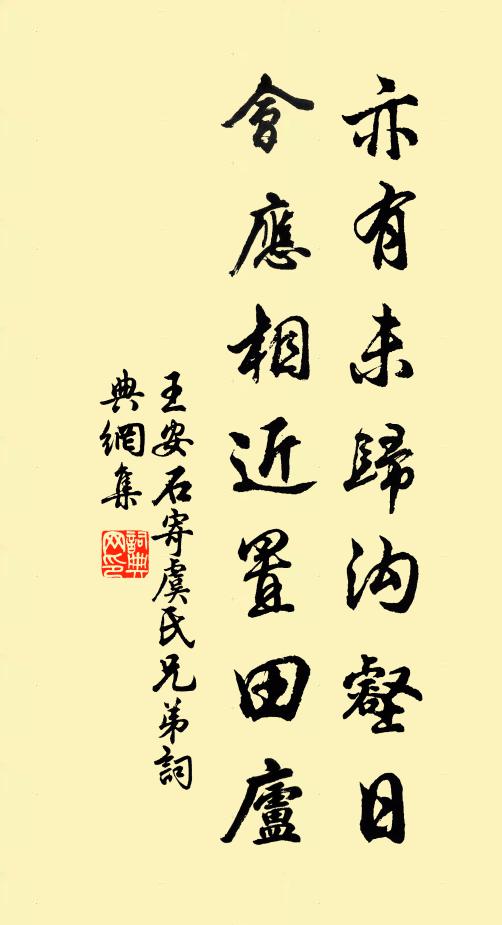 亦有未歸沟壑日
會應相近置田廬
王安石寄虞氏兄弟詞
典網集
詞典
网印